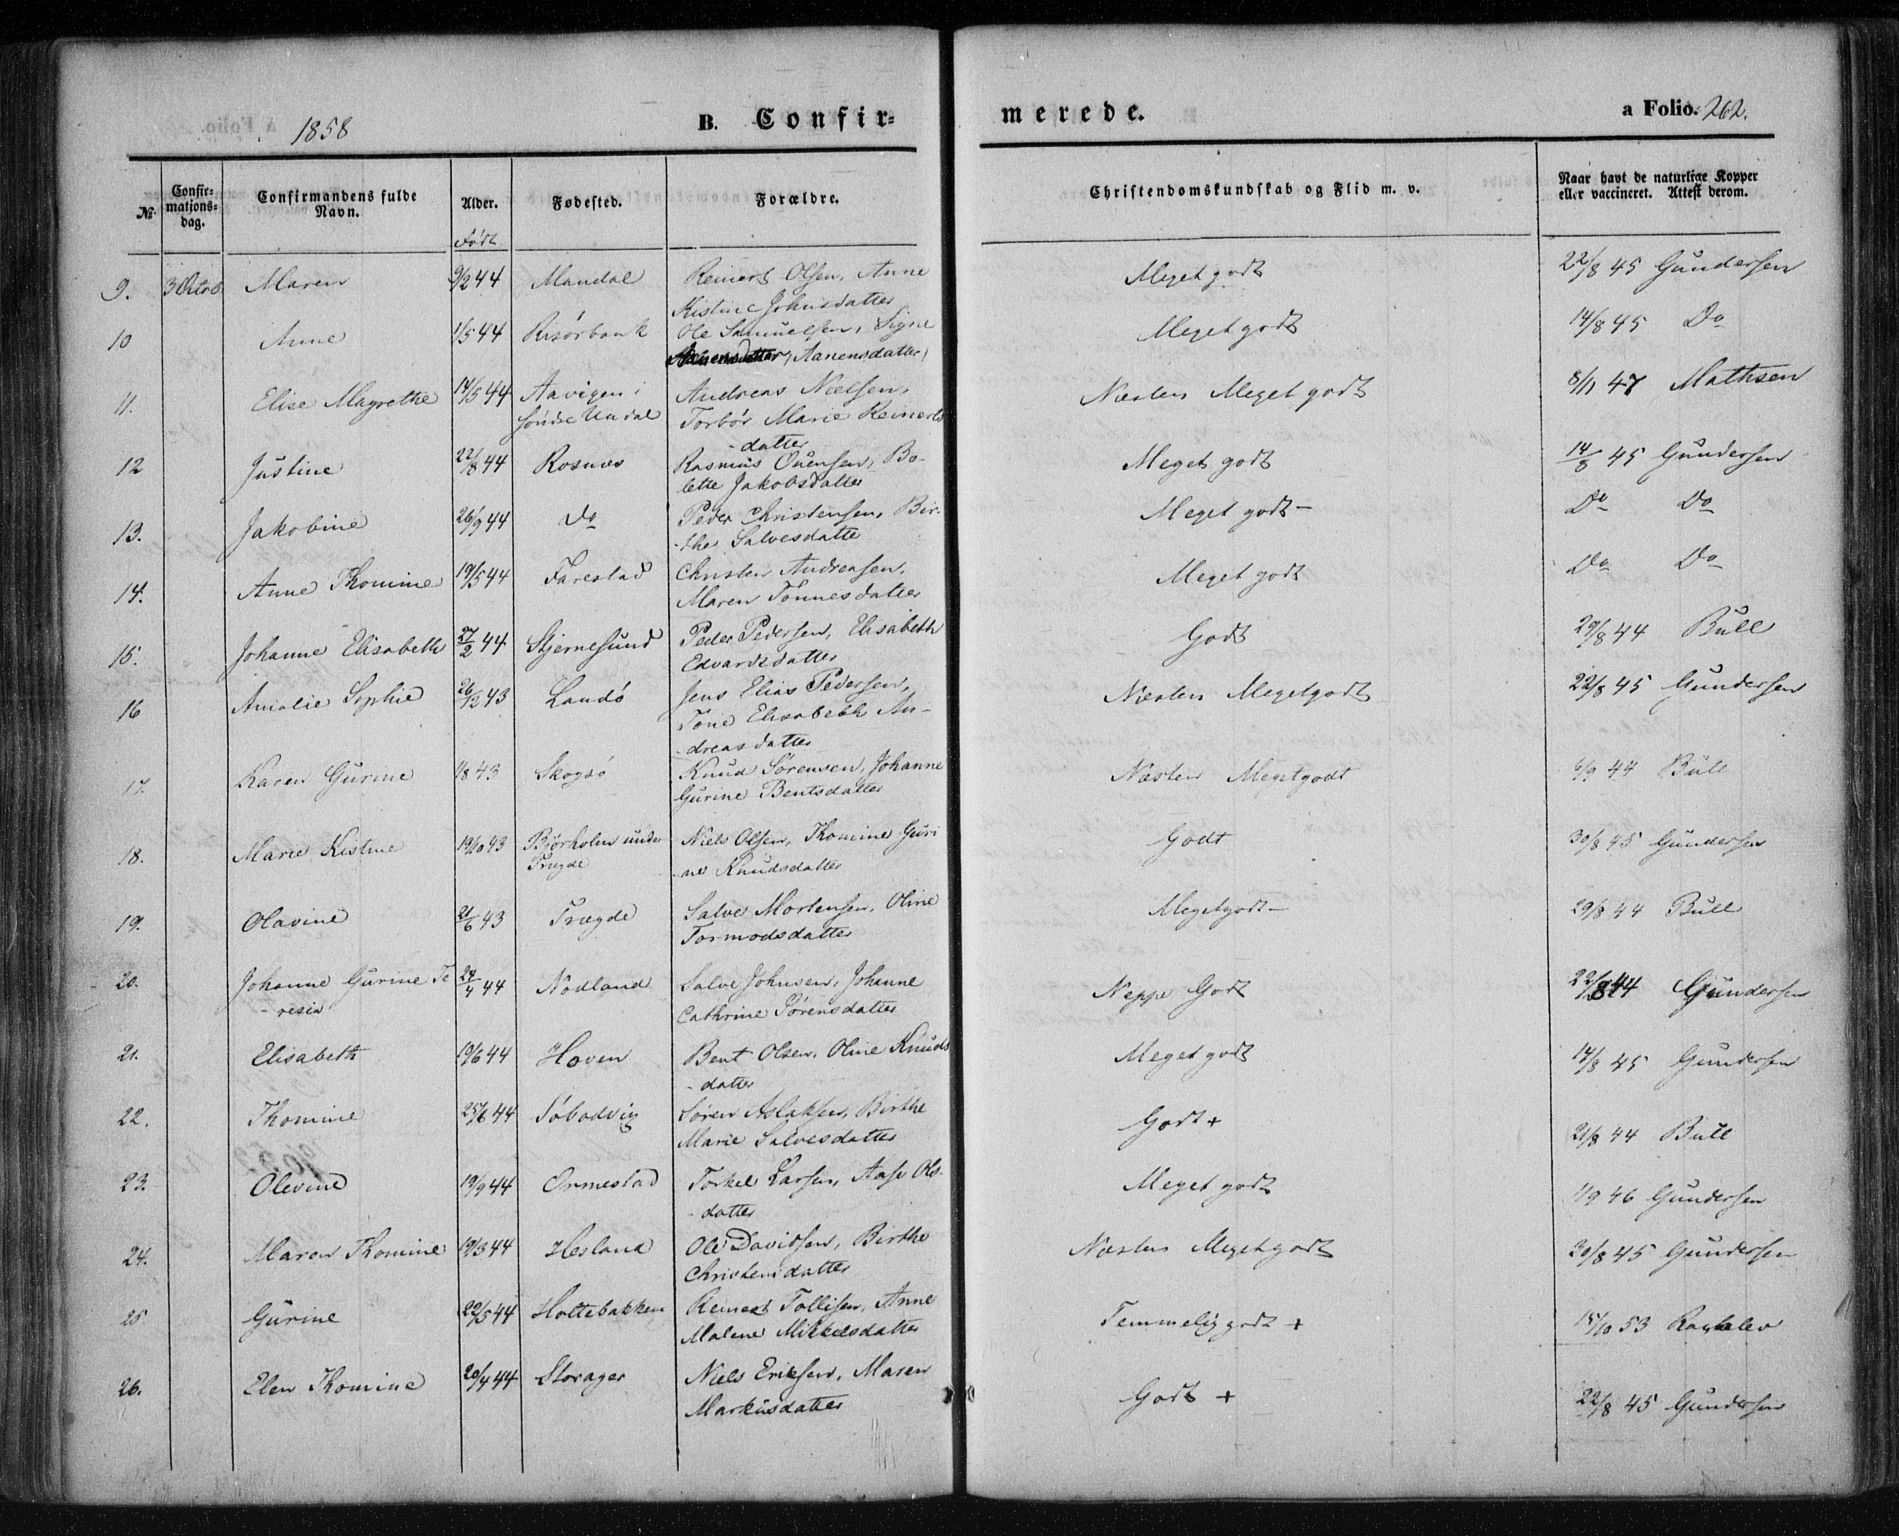 1858 B. Confir- merede. a Folio. 262.
№. Confir-mations-dag. Confirmandens fulde Navn. Alder. Fødested. Forældre. Christendomskundskab og Flid m. v. Naar havt de naturlige Kopper eller vaccineret. Attest derom.
Født
9. 3 Octob Maren 9/2 44 Mandal Reinert Olsen, Anne Meget godt 22/8 45 Gundersen
Kistine Johnsdatter
10 Anne 1/5 44 Risørbank Ole Samuelsen, Signe Meget godt 14/8 45 Do
Aanensdatter,
11. Elise Magrethe 14/5 44 Aavigen i Andreas Nielsen, Næsten Meget godt 8/11 47 Mathsen
søndre Undal Torbør Marie Reinerts
-datter
12 Justine 22/8 44 Rosnes Rasmus Ouensen, Bo- Meget godt 14/8 45 Gundersen
lette Jakobsdatter
13. Jakobine 26/9 44 Do Peder Christensen, Bir- Meget godt - Do Do
-the Salvesdatte
14. Anne Thomine 19/5 44 Farestad Christen Andreasen, Meget godt Do Do
Maren Tønnesdatter
15. Johanne Elisabeth 27/2 44 Stjernesund Peder Pedersen, Elisabeth Godt 29/8 44 Bull
Edvardsdatter
16 Amalie Sophie 26/12 43 Landø Jens Elias Pedersen, Næsten Megetgodt 22/8 45 Gundersen
Tone Elisabeth An-
-dreasdatter
17. Karen Gurine 1/8 43 Skogsø Knud Sørensen, Johanne Næsten Megetgodt 6/9 44 Bull
Gurine Bentsdatter
18. Marie Kistine 19/10 43 Bjørholm under Niels Olsen, Thomine Guri Godt 30/8 45 Gundersen
Trægde ne Knudsdatter
19. Olavine 21/6 43 Trægde Salve Mortensen, Oline Megetgodt - 29/8 44 Bull
Tormodsdatter
20. Johanne Gurine Te 24/4 44 Nødland Salve Johnsen, Johanne Neppe Godt 22/8 44 Gundersen
-resia Cathrine Sørensdatter
21. Elisabeth 19/6 44 Hoven Bent Olsen, Oline Knuds Meget godt 14/8 45 Gundersen
-datter
22. Thomine 25/6 44 Søbodvig Søren Aslaksen, Birthe Godt + 21/8 44 Bull
Marie Salvesdatter
23. Olevine 19/9 44 Ormestad Torkel Larsen, Aase Ols- Meget godt 1/9 46 Gundersen
-datter
24. Maren Thomine 19/3 44 Hesland Ole Davidsen, Birthe Næsten Megetgodt 30/8 45 Gundersen
Christensdatter
25 Gurine 22/5 44 Holtebakken Reinert Tollisen, Anne Temmelig godt + 15/10 53
Malene Mikkelsdatter
26. Elen Thomine 20/4 44 Storager Niels Eriksen, Maren Godt + 22/8 45 Gundersen
Markusdatter